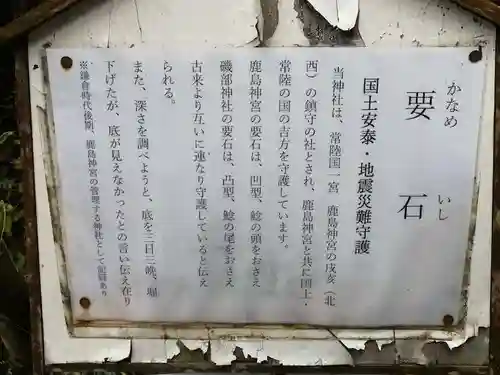 かなめ いし
要石
国土安泰・地震災難守護
当神社は、常陸国一宮 鹿島神宮の戌亥（北
西）の鎮守の社とされ、鹿島神宮と共に国土・
常陸の国の吉方を守護しています。
鹿島神宮の要石は、凹型、鯰の頭をおさえ
磯部神社の要石は、凸型、鯰の尾をおさえ
古来より互いに連なり守護していると伝え
られる。
また、深さを調べようと、底を三日三晩、堀
下げたが、底が見えなかったとの言い伝え在り
※鎌倉時代後期、鹿島神宮の管理する神社として記録あり